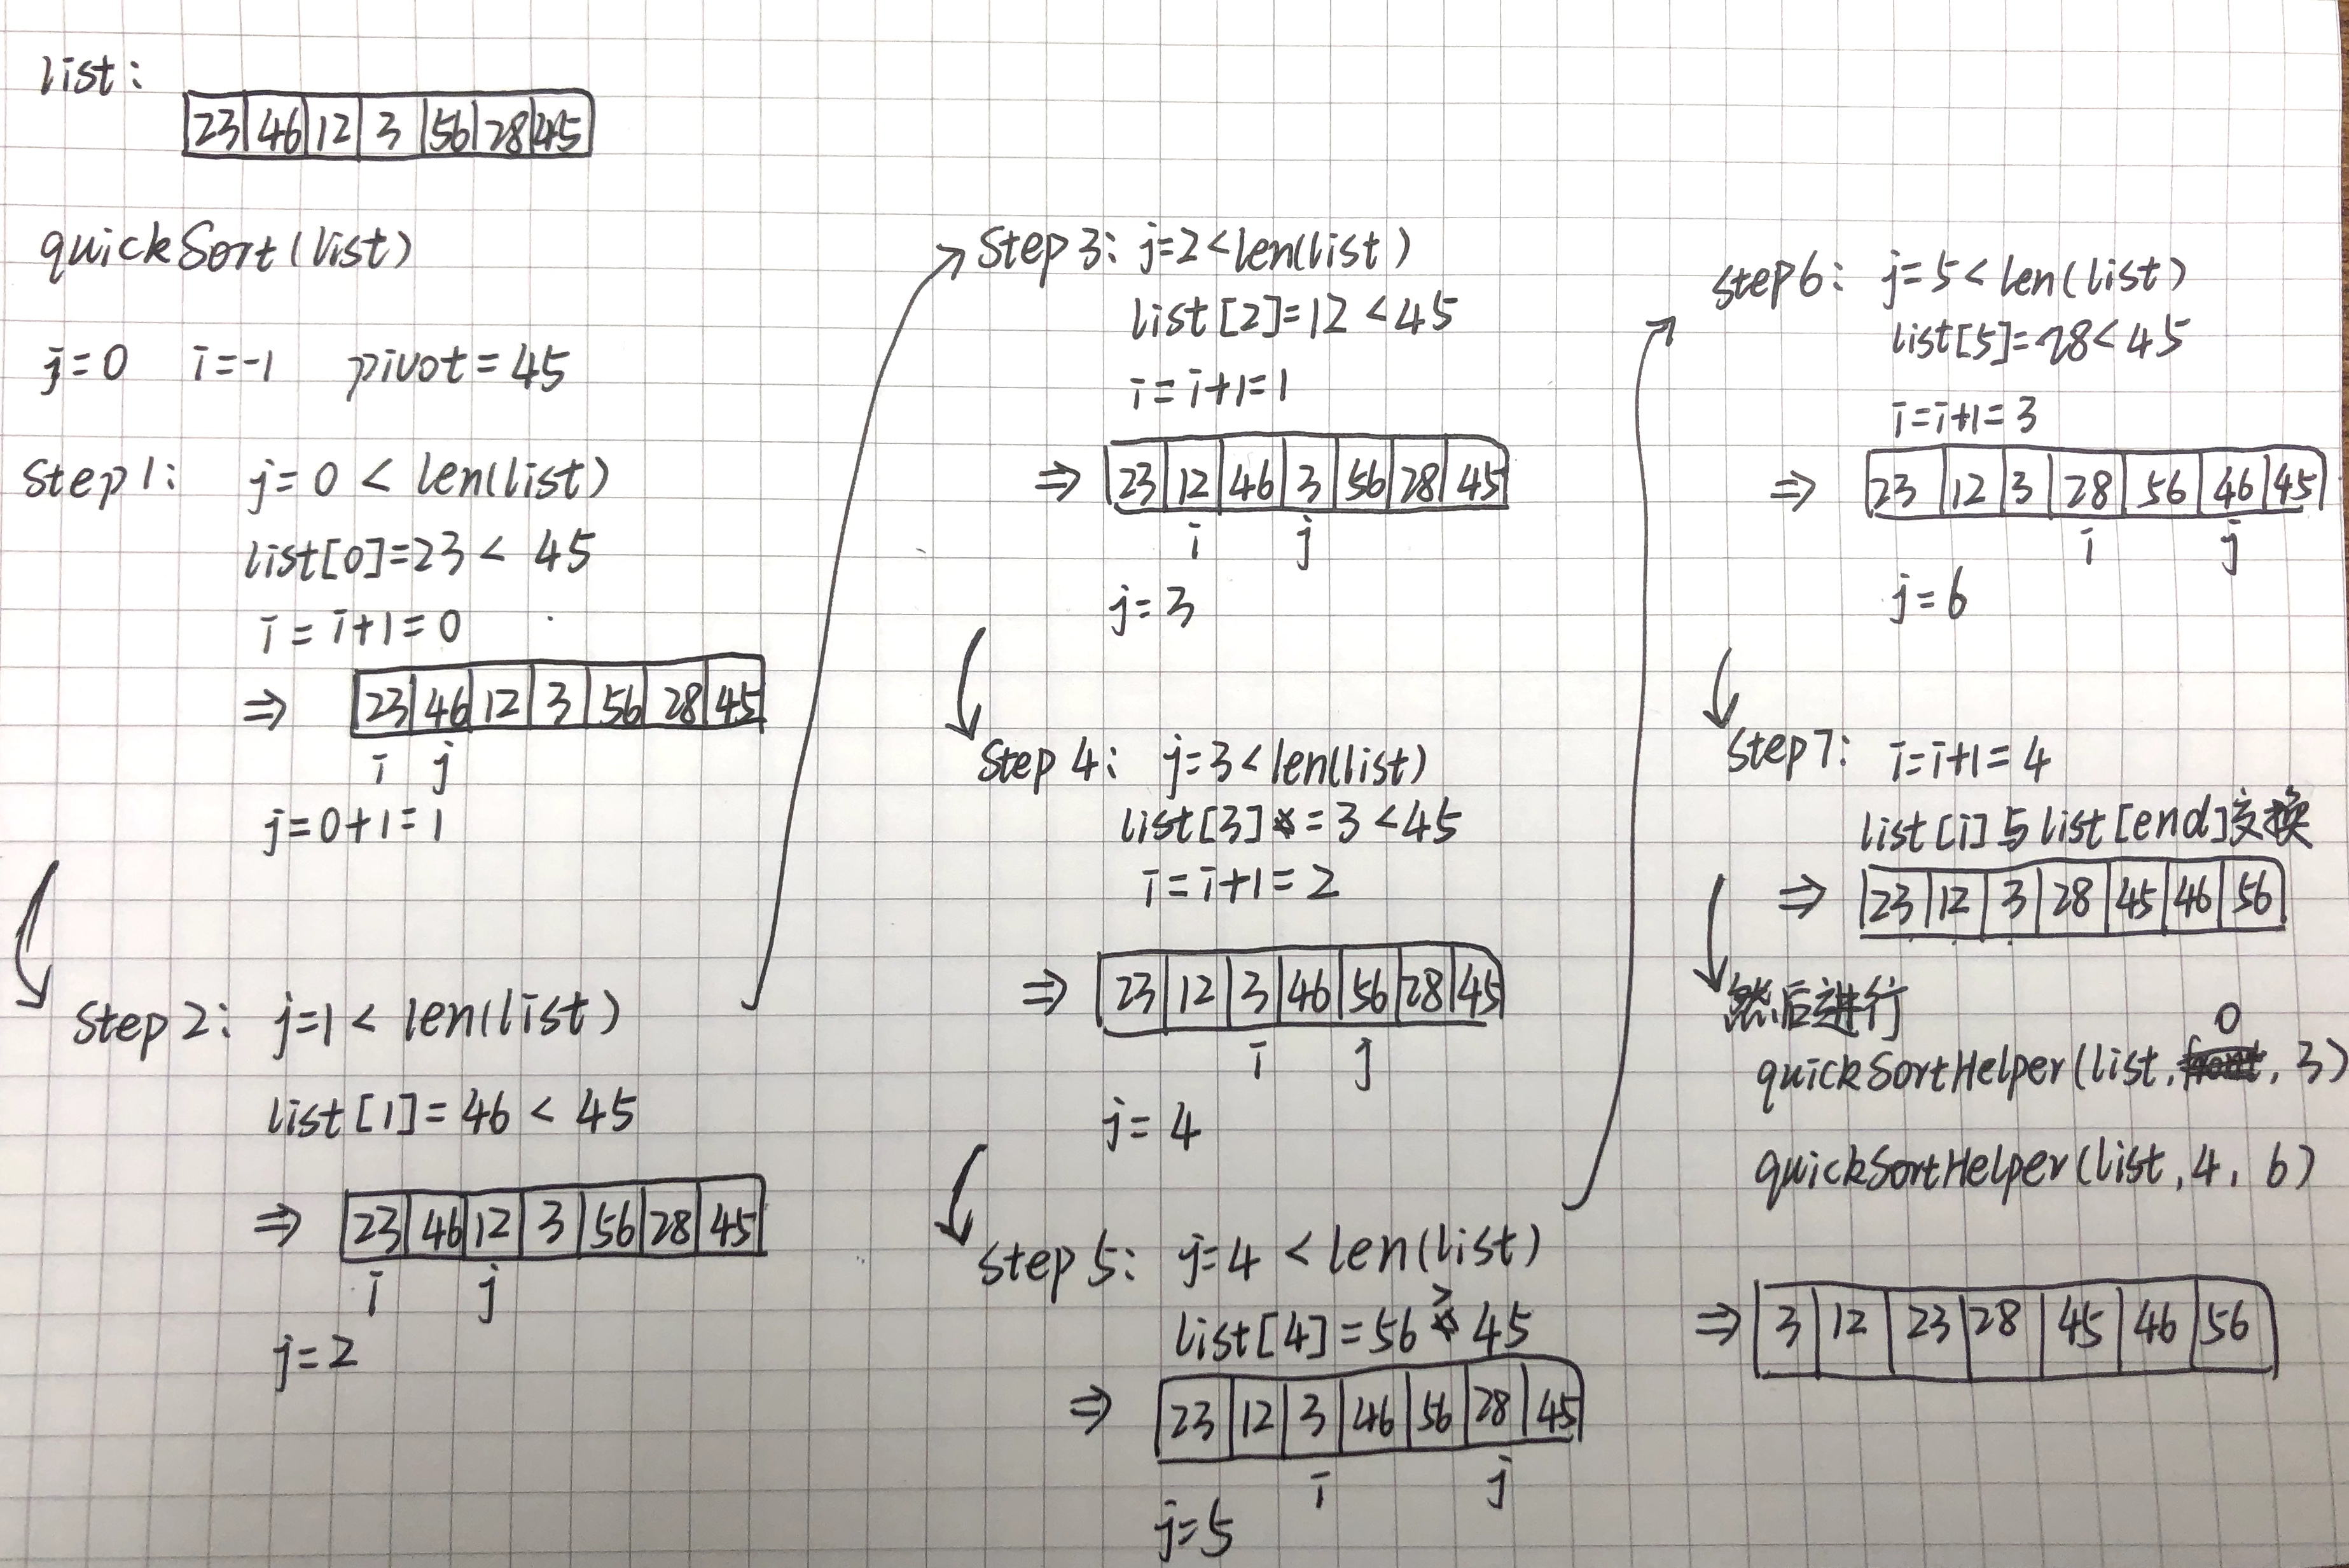 list:
23 46 12 3 56 28 45
quickSort(list)
j=0 i=-1 pivot=45
Step1: j=0 < len(list)
list[0]=23 < 45
i=i+1=0
⇒ 23 46 12 3 56 28 45
i j
j=0+1=1
Step2: j=1 < len(list)
list[1]=46 < 45
⇒ 23 46 12 3 56 28 45
i j
j=2
Step3: j=2<len(list)
list[2]=12<45
i=i+1=1
⇒ 23 12 46 3 56 28 45
i j
j=3
Step4: j=3<len(list)
list[3]=3<45
i=i+1=2
⇒ 23 12 3 46 56 28 45
i j
j=4
Step5: j=4 < len(list)
list[4]=56 > 45
⇒ 23 12 3 46 56 28 45
i j
j=5
Step6: j=5<len(list)
list[5]=28<45
i=i+1=3
⇒ 23 12 3 28 56 46 45
i j
j=6
Step7: i=i+1=4
list[i]与list[end]交换
⇒ 23 12 3 28 45 46 56
然后进行
quickSortHelper(list, 0, 3)
quickSortHelper(list, 4, 6)
⇒ 3 12 23 28 45 46 56